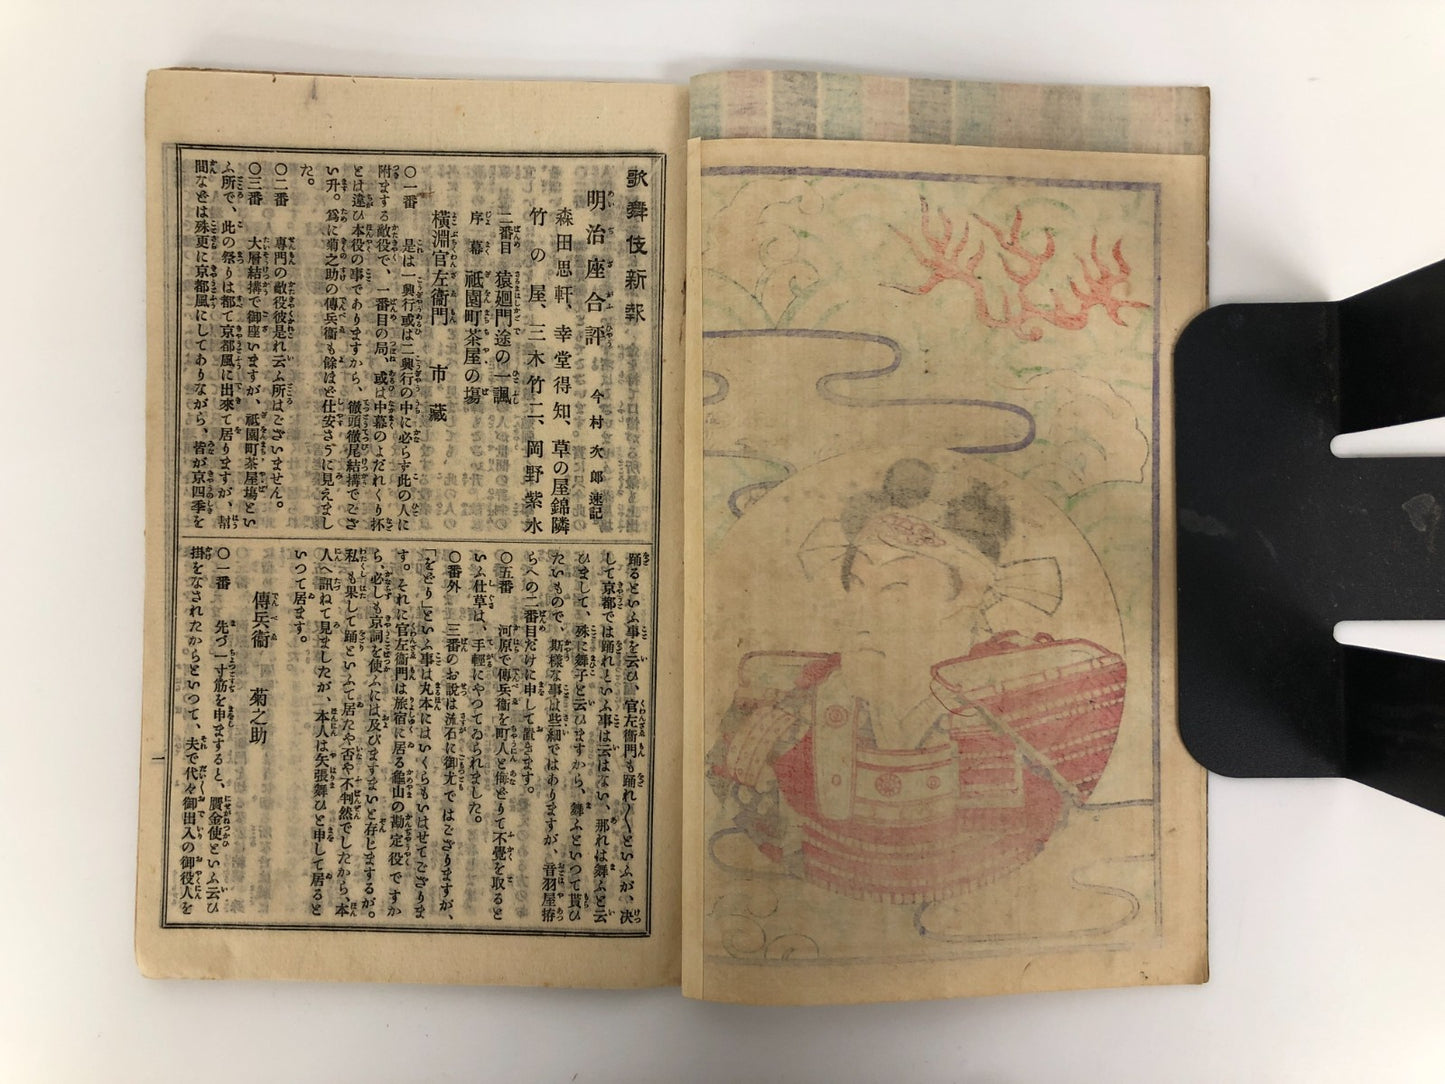 歌舞伎新報
明治座合評　今村次郎速記
森田思軒、幸堂得知、草の屋錦隣
竹の屋、三木竹二、岡野紫水
二番目　猿廻門途の一諷
序幕　祗園町茶屋の塲
横淵官左衞門　市藏
〇一番　是は一興行或は二興行の中に必らず此の人に
附まする敵役で、一番目の局、或は中幕のよだれくり抔
とは違ひ本役の事でありますから、徹頭徹尾結搆でござ
い升。爲に菊之助の傳兵衞も餘ほど仕安さうに見えまし
た。
〇二番　專門の敵役彼是れ云ふ所はございません。
〇三番　大層結搆で御座いますが、祗園町茶屋塲とい
ふ所で、此の祭りは都て京都風に出來て居りますが、
間などは殊更に京都風にしてありながら、皆が京四季を
踊るといふ事を云ひ、官左衞門も踊れ〱といふが、决
して京都では踊れといふ事は云はない、那れは舞ふと云
ひまして、殊に舞子と云ひますから、舞ふといつて貰ひ
たいもので、斯樣な事は些細ではありますが、音羽屋抔
らへの二番目だけに申して置きます。
〇五番　河原で傳兵衞を町人と侮どりて不覺を取ると
いふ仕草は、手輕にやつてゐられました。
〇番外　三番のお說は流石に御尤ではござりますが、
「をどり」といふ事は丸本にはいくらもいはせてござりま
す。それに官左衞門は旅宿に居る龜山の勘定役ですか
ら、必しも京詞を使ふには及びますまいと存じまするが。
私も果して踊といふて居たや否や不判然でしたから、本
人へ訊ねて見ましたが、本人は矢張舞ひと申して居ると
いつて居ます。
傳兵衞　菊之助
〇一番　先づ一寸筋を申しますると、贋金使といふ云ひ
掛をなされたからといつて、夫で代々御出入の御役人を